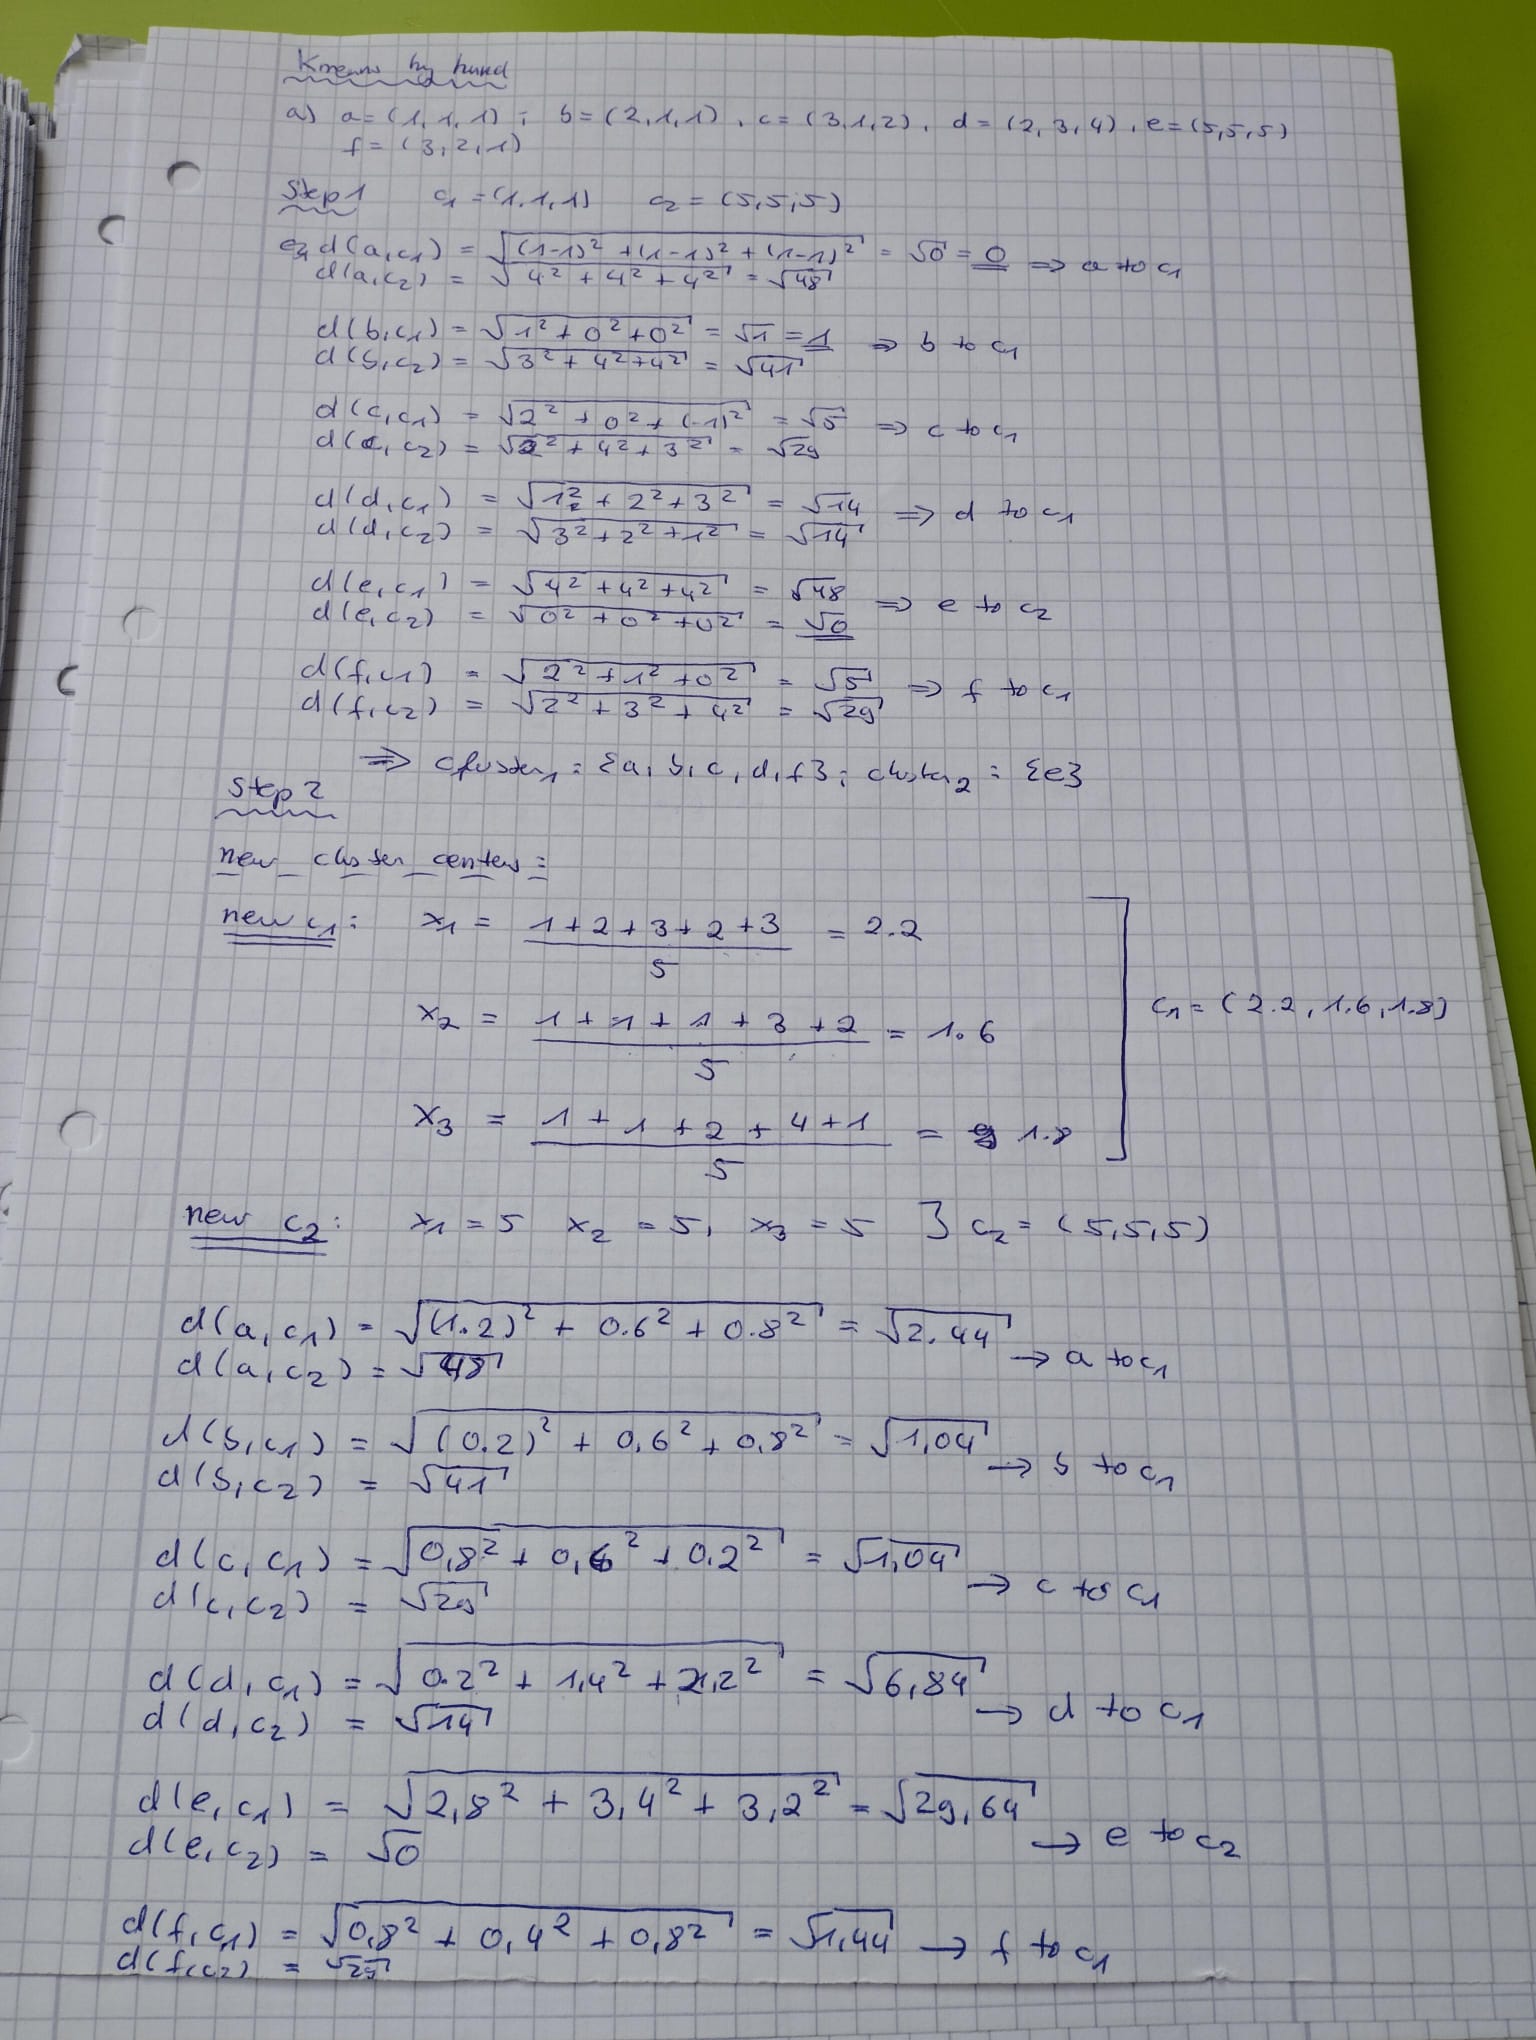 Kmeans by hand
a) a = (1, 1, 1) ; b = (2, 1, 1) , c = (3, 1, 2) , d = (2, 3, 4) , e = (5, 5, 5)
f = (3, 2, 1)
Step 1 c₁ = (1, 1, 1) c₂ = (5, 5, 5)
d(a, c₁) = √((1-1)² + (1-1)² + (1-1)²) = √0 = 0 ⇒ a to c₁
d(a, c₂) = √(4² + 4² + 4²) = √48
d(b, c₁) = √(1² + 0² + 0²) = √1 = 1 ⇒ b to c₁
d(b, c₂) = √(3² + 4² + 4²) = √41
d(c, c₁) = √(2² + 0² + (-1)²) = √5 ⇒ c to c₁
d(c, c₂) = √(2² + 4² + 3²) = √29
d(d, c₁) = √(1² + 2² + 3²) = √14 ⇒ d to c₁
d(d, c₂) = √(3² + 2² + 1²) = √14
d(e, c₁) = √(4² + 4² + 4²) = √48 ⇒ e to c₂
d(e, c₂) = √(0² + 0² + 0²) = √0
d(f, c₁) = √(2² + 1² + 0²) = √5 ⇒ f to c₁
d(f, c₂) = √(2² + 3² + 4²) = √29
⇒ cluster₁ = {a, b, c, d, f} ; cluster₂ = {e}
Step 2
new cluster centers:
new c₁: x₁ = (1 + 2 + 3 + 2 + 3) / 5 = 2.2
x₂ = (1 + 1 + 1 + 3 + 2) / 5 = 1.6
c₁ = (2.2, 1.6, 1.8)
x₃ = (1 + 1 + 2 + 4 + 1) / 5 = 1.8
new c₂: x₁ = 5 x₂ = 5, x₃ = 5 ] c₂ = (5, 5, 5)
d(a, c₁) = √((1.2)² + 0.6² + 0.8²) = √2.44 → a to c₁
d(a, c₂) = √48
d(b, c₁) = √((0.2)² + 0,6² + 0,8²) = √1,04 → b to c₁
d(b, c₂) = √41
d(c, c₁) = √(0,8² + 0,6² + 0.2²) = √1,04 → c to c₁
d(c, c₂) = √29
d(d, c₁) = √(0.2² + 1,4² + 2,2²) = √6,84 → d to c₁
d(d, c₂) = √14
d(e, c₁) = √(2,8² + 3,4² + 3,2²) = √29,64 → e to c₂
d(e, c₂) = √0
d(f, c₁) = √(0,8² + 0,4² + 0,8²) = √1,44 → f to c₁
d(f, c₂) = √29